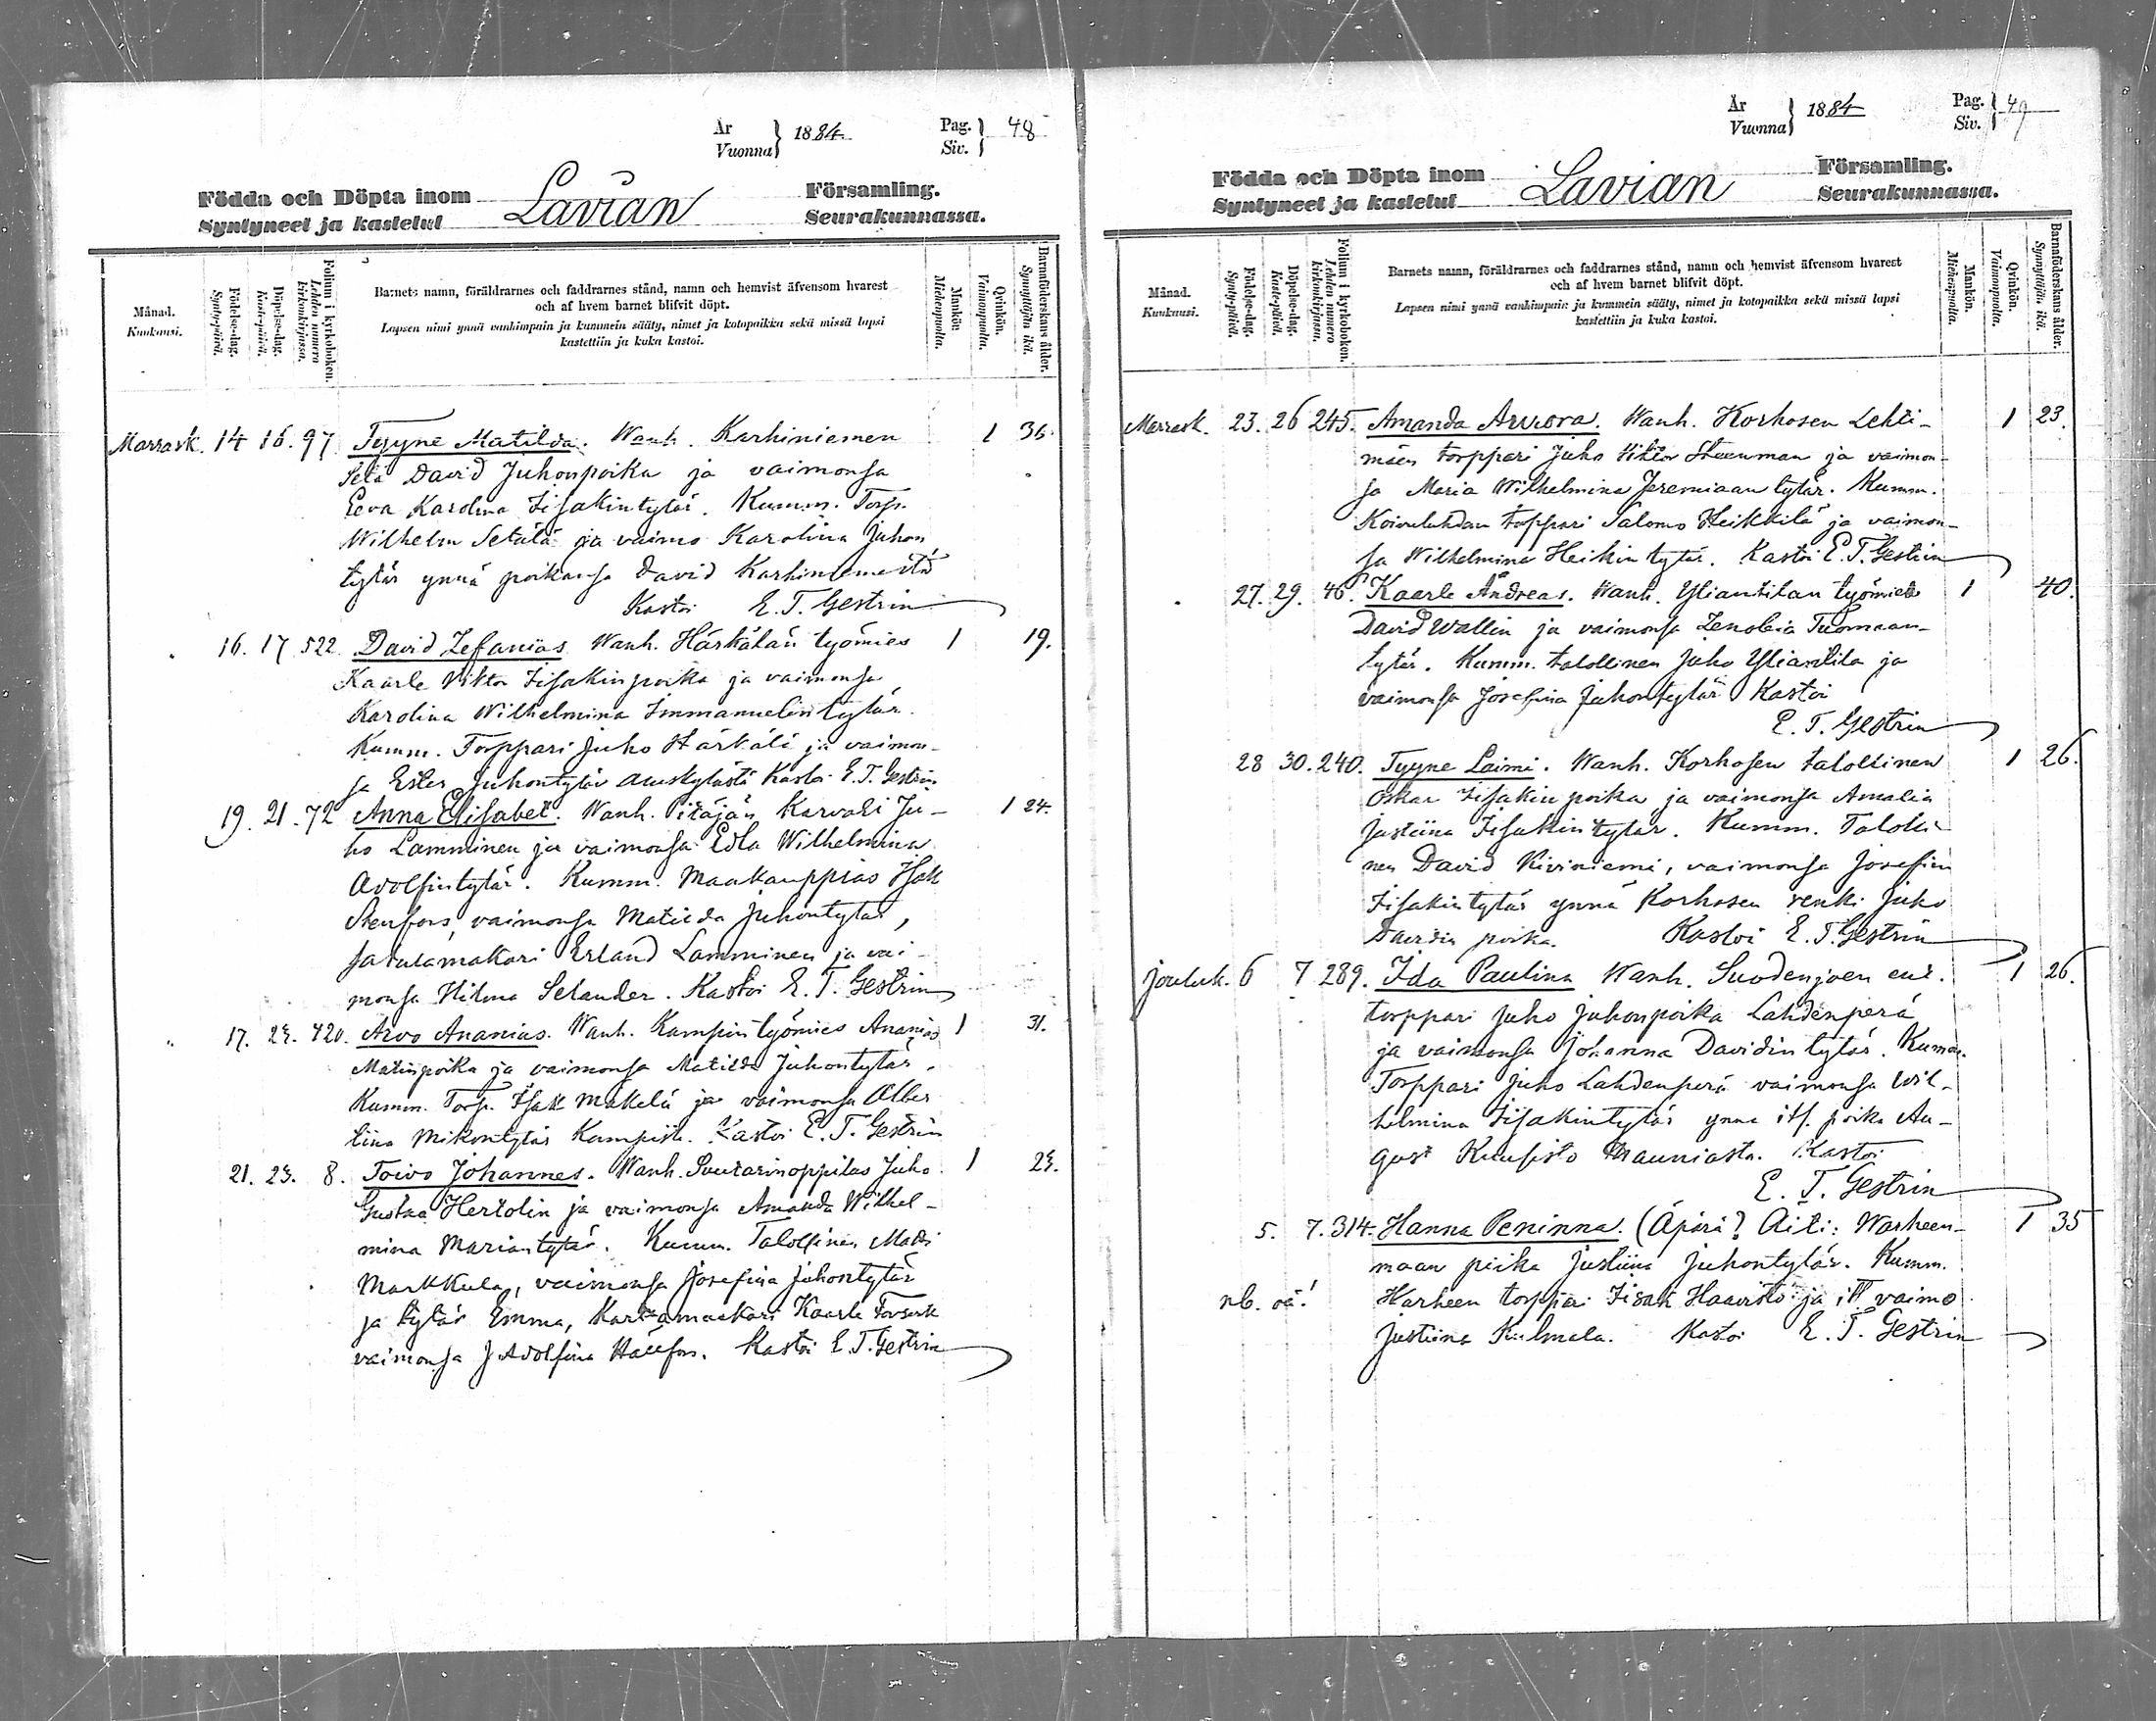 År
Vuonna } 1884. Pag.
Siv. } 48
Födda och Döpta inom
Syntyneet ja kastetut Lavian Församling.
Seurakunnassa.
Månad.
Kuukausi.
Födelse-dag.
Synty-päivä.
Döpelse-dag.
Kaste-päivä.
Folium i kyrkoboken.
Lehden numero kirkonkirjassa.
Barnets namn, föräldrarnes och faddrarnes stånd, namn och hemvist äfvensom hvarest
och af hvem barnet blifvit döpt.
Lapsen nimi ynnä vanhimpain ja kummein sääty, nimet ja kotopaikka sekä missä lapsi
kastettiin ja kuka kastoi.
Mankön.
Miehenpuolia.
Qvinkön.
Vaimonpuolia.
Barnaföderskans ålder.
Synnyttäjän ikä.
Marrask. 14 16. 97 Tyyne Matilda. Wanh. Karhiniemen 1 36.
David Juhonpoika ja vaimonsa
Eeva Karolina Iisakintytär. Kumm. Torp.
Wilhelm Setälä ja vaimo Karolina Juhon
tytär ynnä poikansa David Karhiniemestä
Kastoi E. T. Gestrin
16. 17 522 David Zefanias. Wanh. Härkälän työmies 1 19.
Kaarle Viktor Iisakinpoika ja vaimonsa
Karolina Wilhelmina Immanuelintytär.
Kumm. Torppari Juho Härkälä ja vaimon-
sa Ester Juhontytär Kastoi E. T. Gestrin
19. 21. 72 Anna Elisabet. Wanh. itäjän Karvari Ju- 1 24.
ho Lamminen ja vaimonsa Edla Wilhelmina
Adolfintytär. Kumm. Maakauppias Isak
Stenfors, vaimonsa Matilda Juhontytär,
satulamakari Erland Lamminen ja vai-
monsa Hilma Selander. Kastoi E. T. Gestrin
17. 23. 420. Arvo Ananias. Wanh. Kampin työmies Ananias 1 31.
Matinpoika ja vaimonsa Matilda Juhontytär.
Kumm. Torp. Isak Mäkelä ja vaimonsa Alber
tiina Mikontytär Kampista. Kastoi E. T. Gestrin
21. 23. 8. Toivo Johannes. Wanh. Suutarinoppilas Juho 1 23.
Gustaa Hertolin ja vaimonsa Amanda Wilhel-
mina Mariantytär. Kumm. Talollinen Matti
Markkula, vaimonsa Josefina Juhontytär
ja tytär Emma, Kaarle
vaimonsa J Adolfina Hällfors. Kastoi E. T. Gestrin
År
Vuonna } 1884 Pag.
Siv. } 49
Födda och Döpta inom
Syntyneet ja kastetut Lavian Församling.
Seurakunnassa.
Månad.
Kuukausi.
Födelse-dag.
Synty-päivä.
Döpelse-dag.
Kaste-päivä.
Folium i kyrkoboken.
Lehden numero kirkonkirjassa.
Barnets namn, föräldrarnes och faddrarnes stånd, namn och hemvist äfvensom hvarest
och af hvem barnet blifvit döpt.
Lapsen nimi ynnä vanhimpain ja kummein sääty, nimet ja kotopaikka sekä missä lapsi
kastettiin ja kuka kastoi.
Mankön.
Miehenpuolia.
Qvinkön.
Vaimonpuolia.
Barnaföderskans ålder.
Synnyttäjän ikä.
Marrask. 23. 26 245. Amanda Aurora. Wanh. Korhosen Lehti- 1 23.
mäen torppari Juho Viktor Steenman ja vaimon-
sa Maria Wilhelmina Jeremiaan tytär. Kumm.
Koivuluhdan torppari Salomo Heikkilä ja vaimon-
sa Wilhelmina Heikin tytär. Kastoi E. T. Gestrin
27. 29. 46. Kaarle Andreas. Wanh. Yliantilan työmies 1 40.
David Wallin ja vaimonsa Zenobia Tuomaan-
tytär. Kumm. talollinen Juho Yliantila ja
vaimonsa Josefina Juhontytär Kastoi
E. T. Gestrin
28 30. 240. Tyyne Laimi. Wanh. Korhosen talollinen 1 26.
Oskar Iisakin poika ja vaimonsa Amalia
Justiina Iisakintytär. Kumm. Talolli-
nen David Kiviniemi, vaimonsa Josefin
Iisakintytär ynnä Korhosen renki Juho
Davidin poika. Kastoi E. T. Gestrin
Jouluk. 6 7 289. Ida Paulina Wanh. Suodenjoen ent. 1 26.
torppari Juho Juhonpoika Lahdenperä
ja vaimonsa Johanna Davidin tytär. Kumm.
Torppari Juho Lahdenperä vaimonsa Wil-
helmina Iisakintytär ynnä its. poika Au-
gust Kuusisto Mauniasta. Kastoi
E. T. Gestrin
5. 7. 314. Hanna Peninna. (Äpärä? Äiti: Warheen- 1 35
maan piika Justiina Juhontytär. Kumm.
nb. oä! Harheen torppari Iisak Haavisto ja its. vaimo
Justiina Kulmala. Kastoi E. T. Gestrin